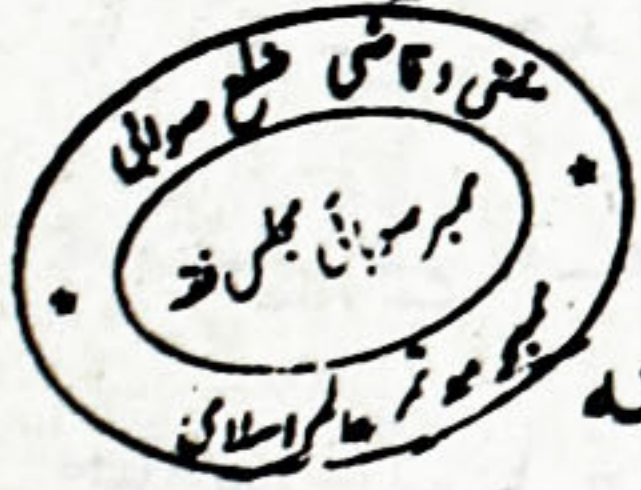 مفتی و قاضی ضلع صوابی
ممبر صوبائی مجلس فقہ
ممبر موتمر عالم اسلامی